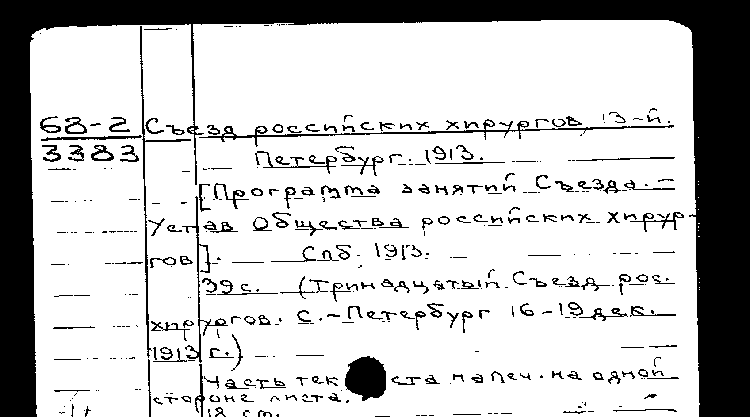 68-2 Съезд российских хирургов, 13-й.
3383 Петербург. 1913.
[Программа занятий Съезда. -
Устав Общества российских хирур-
гов]. Спб, 1913.
39с. (Тринадцатый Съезд рос.
хирургов. С.-Петербург 16-19 дек.
1913 г.)
Часть текста напеч. на одной
стороне листа.
18 cm.